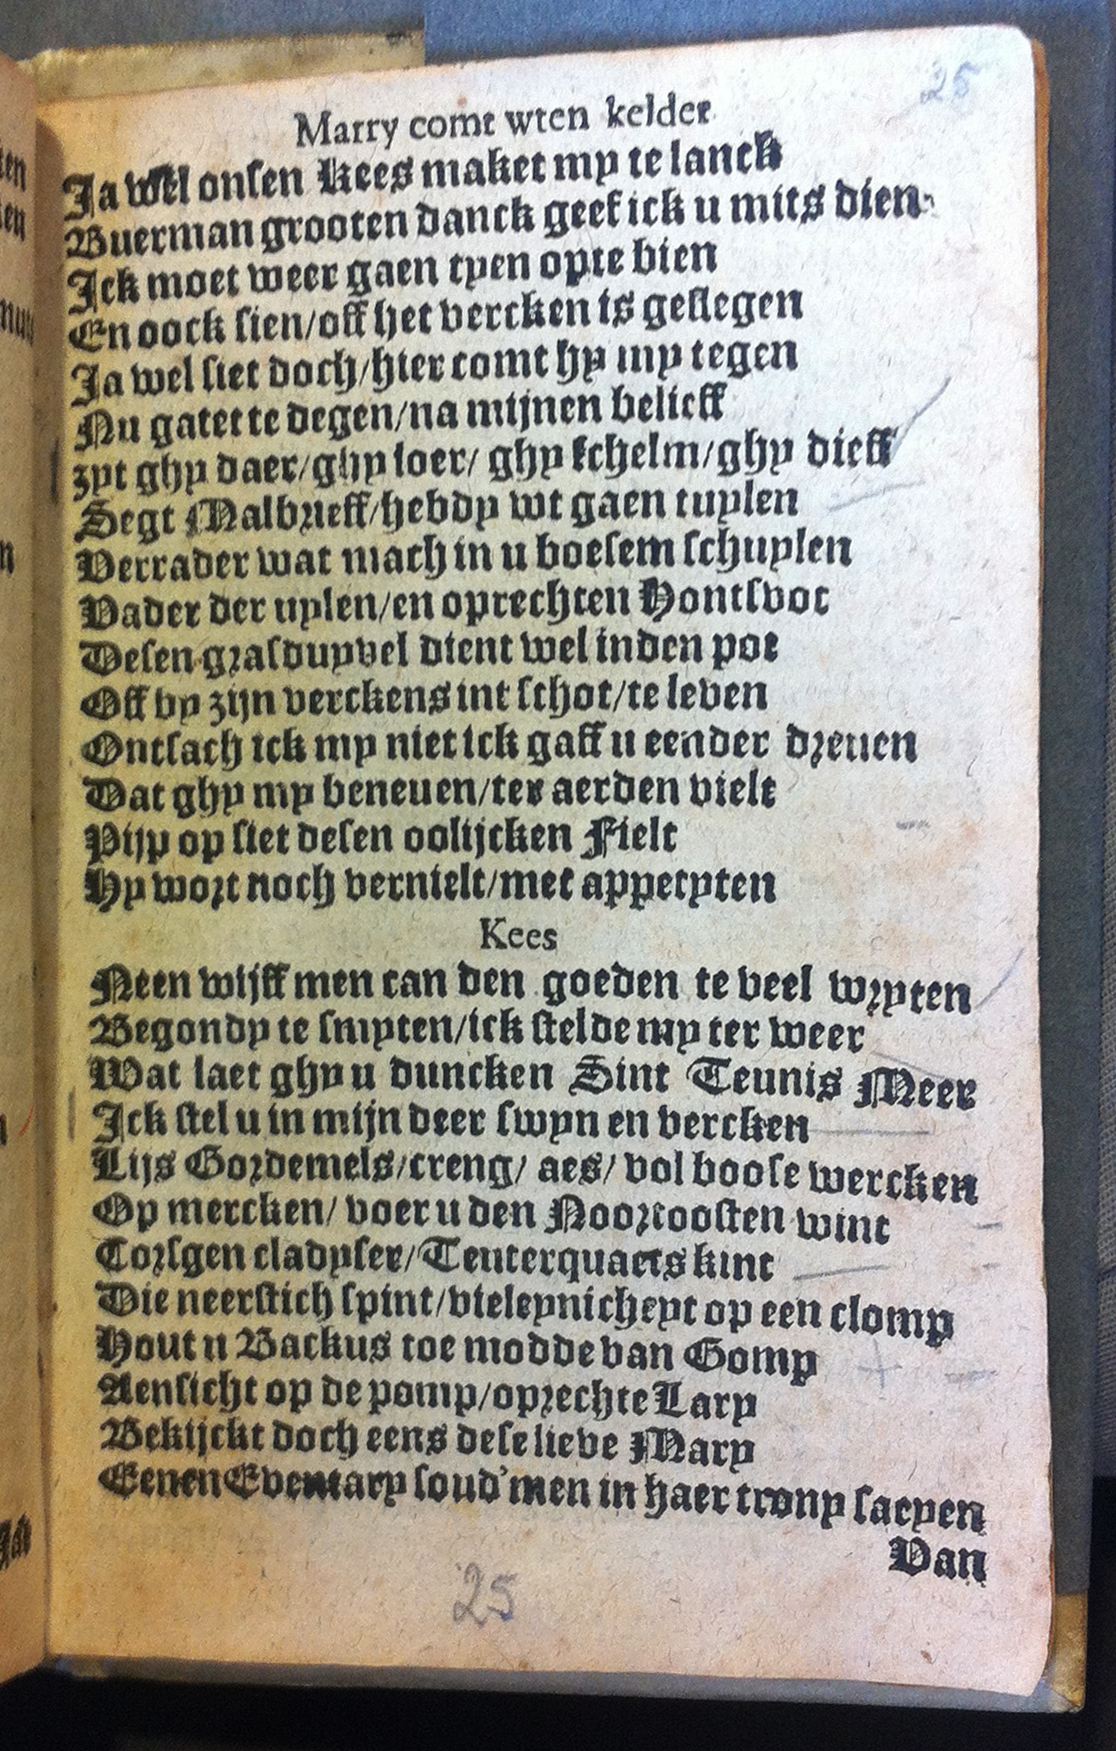 25
Marry comt wten kelder
Ja wel onsen Kees maket my te lanck
Buerman grooten danck geef ick u mits dien
Ick moet weer gaen tyen opte bien
En oock sien/off het vercken is geslegen
Ja wel siet doch/hier comt hy my tegen
Nu gatet te degen/na mijnen belieff
zyt ghy daer/ghy loer/ ghy schelm/ghy dieff
Segt Malbrieff/hebdy wt gaen tuylen
Verrader wat mach in u boesem schuylen
Vader der uylen/en oprechten Hontsvot
Desen grasduyvel dient wel inden pot
Off by zijn verckens int schot/te leven
Ontsach ick my niet ick gaff u eender dreuen
Dat ghy my beneuen/ter aerden vielt
Pijp op siet desen oolijcken Fielt
Hy wort noch vernielt/met appetyten
Kees
Neen wijff men can den goeden te veel wryten
Begondy te smyten/ick stelde my ter weer
Wat laet ghy u duncken Sint Teunis Meer
Ick stel u in mijn deer swyn en vercken
Lijs Gordemels/creng/ aes/ vol boose wercken
Op mercken/ voer u den Noortoosten wint
Corsgen cladyser/Teuterquaets kint
Die neerstich spint/vieleynicheyt op een clomp
Hout u Backus toe modde van Gomp
Aensicht op de pomp/oprechte Lary
Bekijckt doch eens dese lieve Mary
Eenen Eventary soud'men in haer trony saeyen
Van
25